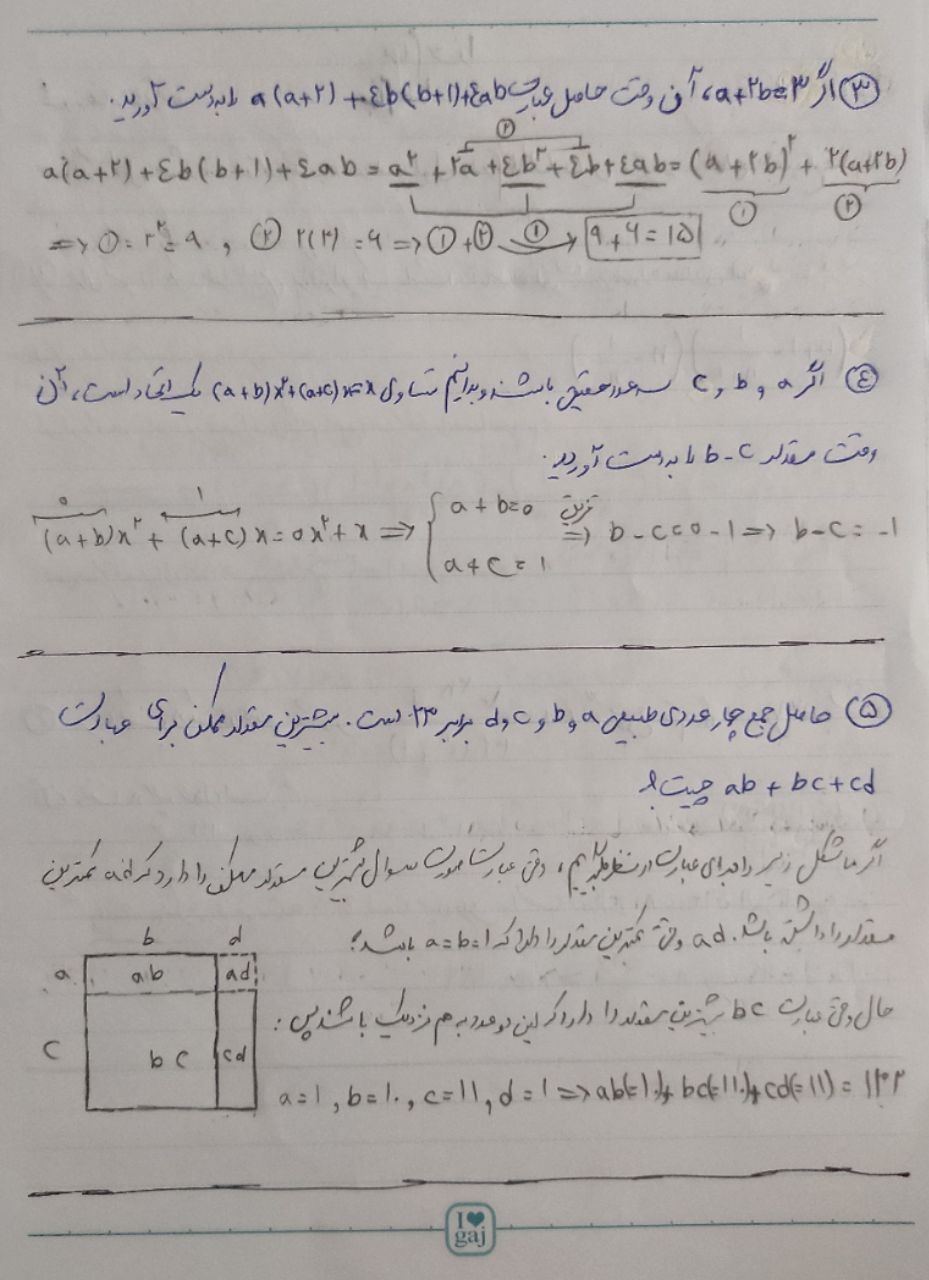 ۳) اگر a+۲b=۳، آن وقت حاصل عبارت a(a+۲)+۴b(b+۱)+۴ab را به دست آورید.
a(a+۲)+۴b(b+۱)+۴ab = a^۲ + ۲a + ۴b^۲ + ۴b + ۴ab = (a+۲b)^۲ + ۲(a+۲b)
۲ ۱ ۲
=> ① = ۳^۲ = ۹ , ② ۲(۳) = ۶ => ① + ② => ۹+۶=۱۵
۴) اگر a و b و c سه عدد حقیقی باشند و بدانیم تساوی (a+b)x^۲+(a+c)x=x یک اتحاد است، آن
وقت مقدار b-c را به دست آورید.
۰ ۱
(a+b)x^۲ + (a+c)x = ۰x^۲ + x => { a+b=۰ , a+c=۱ => b-c=۰-۱ => b-c=-۱
۵) حاصل جمع چهار عددی طبیعی a و b و c و d برابر ۲۳ است. بیشترین مقدار ممکن برای عبارت
ab + bc + cd چیست؟
اگر ما شکل زیر را برای عبارت در نظر بگیریم، وقتی عبارت صورت سوال بیشترین مقدار ممکن را دارد که ad کمترین
مقدار را داشته باشد. ad وقتی کمترین مقدار را دارد که a=b=۱ باشد؛
حال وقتی عبارت bc بیشترین مقدار را دارد که این دو عدد به هم نزدیک باشند پس:
a=۱, b=۱۰, c=۱۱, d=۱ => ab(=۱۰) + bc(=۱۱۰) + cd(=۱۱) =
b d
a ab ad
c bc cd
I ♥
gaj